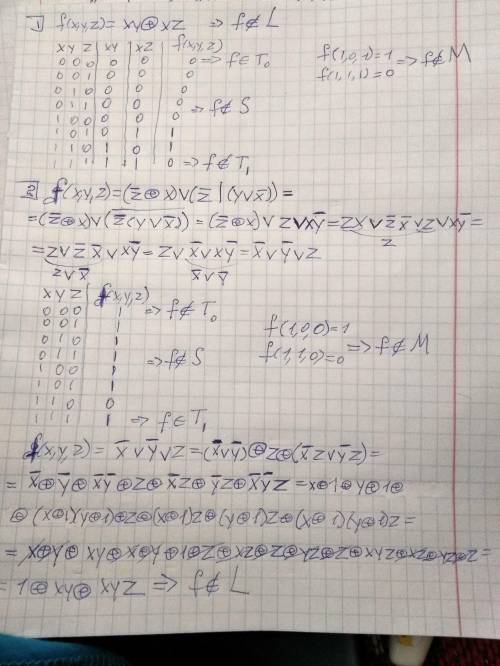 1) f(x,y,z) = xy⊕xz ⇒ f∉L
x y z | xy | xz | f(x,y,z)
0 0 0 | 0 | 0 | 0 ⇒ f∈T₀
0 0 1 | 0 | 0 | 0
0 1 0 | 0 | 0 | 0
0 1 1 | 0 | 0 | 0 ⇒ f∉S
1 0 0 | 0 | 0 | 0
1 0 1 | 0 | 1 | 1
1 1 0 | 1 | 0 | 1
1 1 1 | 1 | 1 | 0 ⇒ f∉T₁
f(1,0,1)=1
f(1,1,1)=0 ⇒ f∉M
2) f(x,y,z)=(z̄⊕x)∨(z̄ | (y∨x̄)) =
=(z̄⊕x)∨(z̄(y∨x̄)) = (z̄⊕x)∨z∨xȳ = zx∨z̄x̄∨z∨xȳ =
z
= z∨z̄x̄∨xȳ = z∨x̄∨xȳ = x̄∨ȳ∨z
z∨x̄ x̄∨ȳ
x y z | f(x,y,z)
0 0 0 | 1 ⇒ f∉T₀
0 0 1 | 1
0 1 0 | 1
0 1 1 | 1 ⇒ f∉S
1 0 0 | 1
1 0 1 | 1
1 1 0 | 0
1 1 1 | 1 ⇒ f∈T₁
f(1,0,0)=1
f(1,1,0)=0 ⇒ f∉M
f(x,y,z) = x̄∨ȳ∨z = (x̄∨ȳ)⊕z⊕(x̄z∨ȳz) =
= x̄⊕ȳ⊕x̄ȳ⊕z⊕x̄z⊕ȳz⊕x̄ȳz = x⊕1⊕y⊕1⊕
⊕(x⊕1)(y⊕1)⊕z⊕(x⊕1)z⊕(y⊕1)z⊕(x⊕1)(y⊕1)z =
= x⊕y⊕xy⊕x⊕y⊕1⊕z⊕xz⊕z⊕yz⊕z⊕xyz⊕xz⊕yz⊕z =
= 1⊕xy⊕xyz ⇒ f∉L